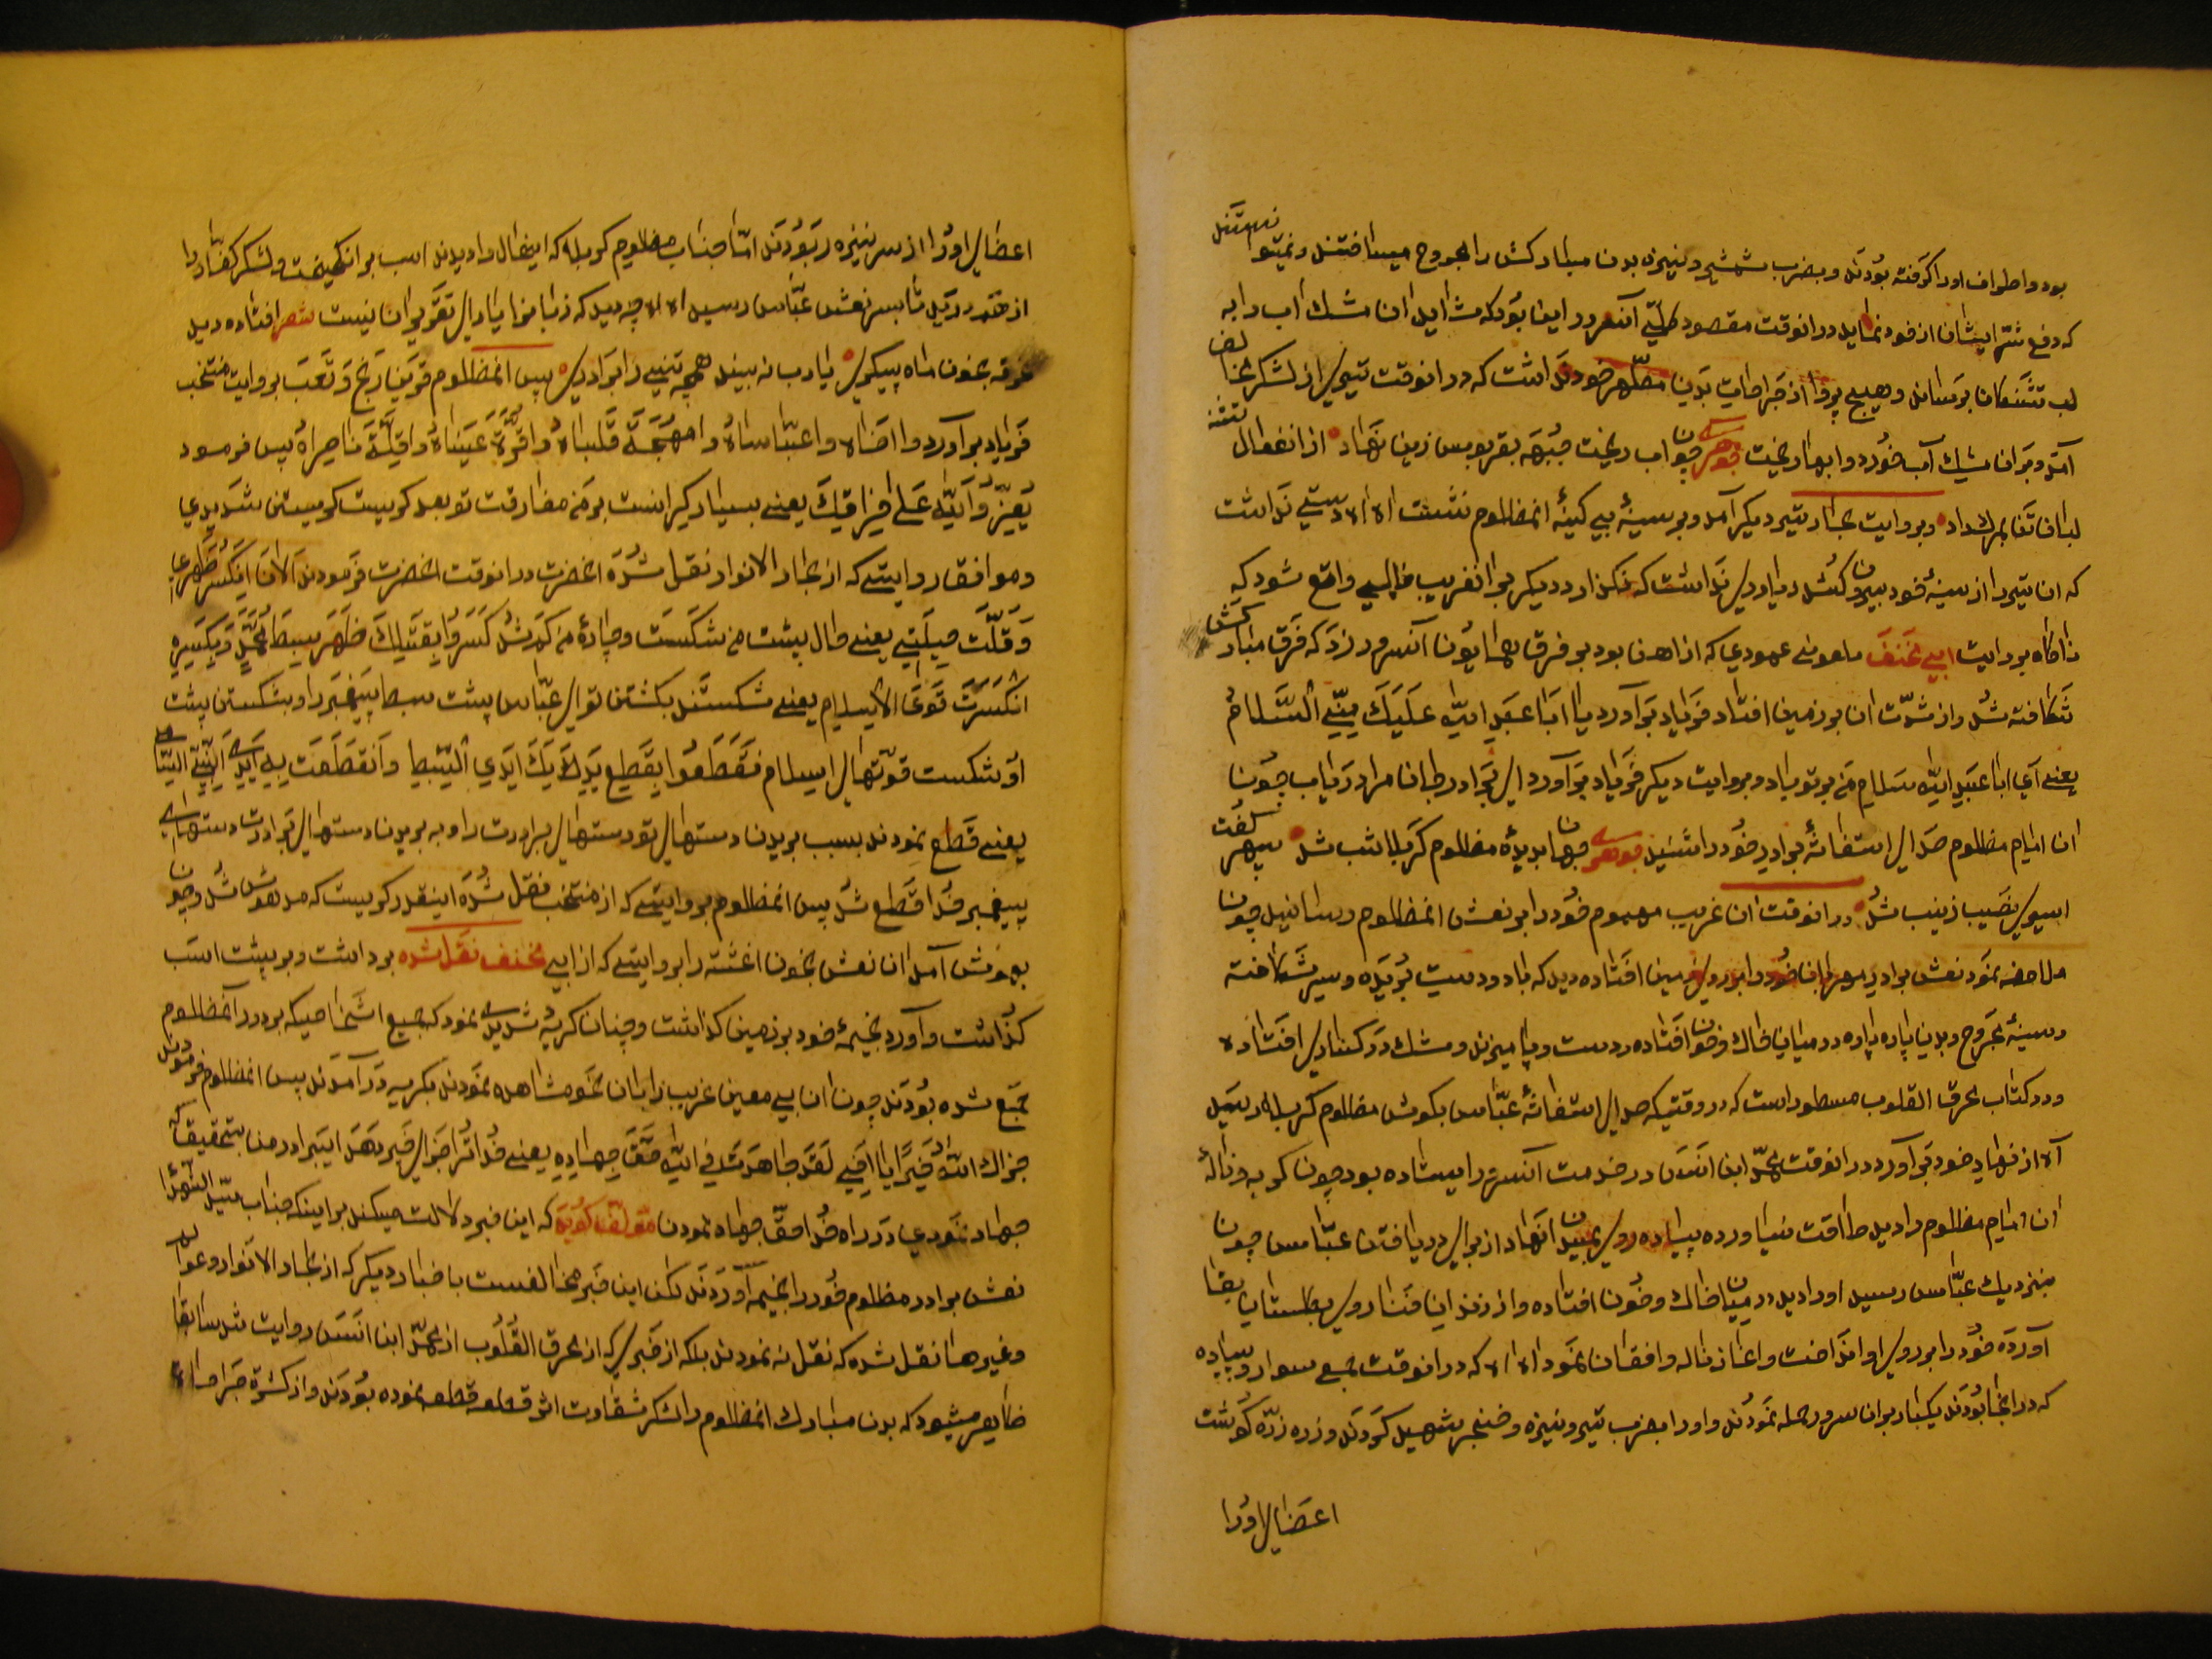 بود و اطراف او را گرفته بودند و بضرب شمشیر و نیزه بدن مبارکش را مجروح میساختند و نمیتوانستند
که دفع شر ایشان از خود نماید در انوقت مقصود کلی آنسرور این بود که شاید ان مشك اب را به
لب تشنکان برساند و هیچ پروا از جراحات بدن مطهر خود نداشت که در انوقت تیری از لشکر مخالف
آمد و بر ان مشك آب خورد و ابها ریخت چون اب ریخت جبهه بقربوس زین نهاد از انفعال
لبان تفا بمرك داد و بروایت بحار تیر دیکر آمد و بر سینهٔ بی کینهٔ انمظلوم نشست اه اه دستی نداشت
که ان تیر را از سینهٔ خود بیرون کشد و یاوری نداشت که نکذارد دیکر بر انغریب ظلمی واقع شود که
ناکاه بروایت ابی مخنف ملعونی عمودی که از اهن بود بر فرق همایون آنسرور زد که فرق مبارکش
شکافته شد و از شدت ان بر زمین افتاد فریاد برآورد یا ابا عبد الله علیك منی السلام
یعنی آی ابا عبد الله سلام من بر تو باد و بروایت دیکر فریاد برآورد ای برادر جان مرا دریاب چون
ان امام مظلوم صدای استغاثهٔ برادر خود را شنید جهان بدیدهٔ مظلوم کربلا شب شد سپهر کفت
اسیری نصیب زینب شد در انوقت ان غریب مهموم خود را بر نعش انمظلوم رسانید چون
ملاحضه نمود نعش برادر مهربان خود را بر روی زمین افتاده دید که با دو دست بریده و سر شکافته
و سینهٔ مجروح و بدن پاره پاره در میان خاك و خون افتاده و دست و پا میزند و مشك در کناری افتاده
و در کتاب محرق القلوب مسطور است که در وقتیکه صدای استغاثهٔ عباس بکوش مظلوم کربلا رسید
آه از نهاد خود برآورد در انوقت محمد ابن انس در خدمت آنسرور ایستاده بود چون کریه و نالهٔ
ان امام مظلوم را دید طاقت نیاورده پیاده روی بمیدان نهاد از برای دریافتن عباس چون
بنزدیك عباس رسید او را دید در میان خاك و خون افتاده و از زندان فنا روی بکلستان بقا
آورده خود را بر روی او انداخت و اغاز ناله و افغان نمود اه اه که در انوقت جمعی سوار و پیاده
که در انجا بودند یکبار بر ان سرور حمله نمودند و او را بضرب تیر و نیزه و خنجر شهید کردند و زره زره کوشت
اعضای او را
اعضای او را از سر نیزه ربودند اما جناب مظلوم کربلا که اینحال را دیدند اسب بر انکیخت و لشکر کفار را
از هم دریدند تا بسر نعش عباس رسید اه اه چه دید که زبانرا یارای تقریر ان نیست شعر افتاده دید
غرقه بخون ماه پیکری یا رب نه بیند همچه تنی را برادری پس انمظلوم قرین رنج و تعب بروایت منتخب
فریاد برآورد وا اخاه وا عباساه وا مهجة قلباه وا قرة عیناه وا قلة ناصراه پس فرمود
یعز و الله علی فراقك یعنی بسیار کرانست بر من مفارقت تو بعد کریست کریستن شدیدی
و موافق روایتی که از بحار الانوار نقل شده انحضرت در انوقت انحضرت فرمودند الان انکسر ظهری
و قلت حیلتی یعنی حال پشت من شکست و چارهٔ من کم شد کسروا بقتلك ظهر سبط محمد و بکسره
انکسرت قوی الاسلام یعنی شکستند بکشتن تو ای عباس پشت سبط پیغمبر را و بشکستن پشت
او شکست قوتهای اسلام قطعوا بقطع یدیك ایدی السبط و انقطعت به ایدی النبی
یعنی قطع نمودند بسبب بریدن دستهای تو دستهای برادرت را و به بریدن دستهای برادرت دستهای
پیغمبر خدا قطع شد پس انمظلوم بروایتی که از منتخب نقل شده اینقدر کریست که مدهوش شد و چون
بهوش آمد ان نعش بخون اغشته را بروایتی که از ابی مخنف نقل شده برداشت و بر پشت اسب
کذاشت و آورد بخیمهٔ خود بر زمین کذاشت و چنان کریهٔ شدیدی نمود که جمیع اشخاصیکه بر دور آنمظلوم
جمع شده بودند چون ان بی معین غریب را بان نحو مشاهده نمودند بکریه در آمدند پس انمظلوم فرمودند
جزاك الله خیرا یا اخی لقد جاهدت فی الله حق جهاده یعنی خدا ترا جزای خیر دهد ایبرادر من بتحقیقکه
جهاد نمودی در راه خدا حق جهاد نمودن مؤلف کوید که این خبر دلالت میکند بر اینکه جناب سید الشهدا
نعش برادر مظلوم خود را بخیمه آوردند لکن این خبر مخالفست با خبار دیکر که از بحار الانوار و عوالم
و غیر هما نقل شده که نقل نه نمودند بلکه از خبری که از محرق القلوب از محمد ابن انس روایت شد سابقا
ظاهر میشود که بدن مبارك انمظلوم را لشکر شقاوت اثر قطعه قطعه نموده بودند و از کثرة جراحات